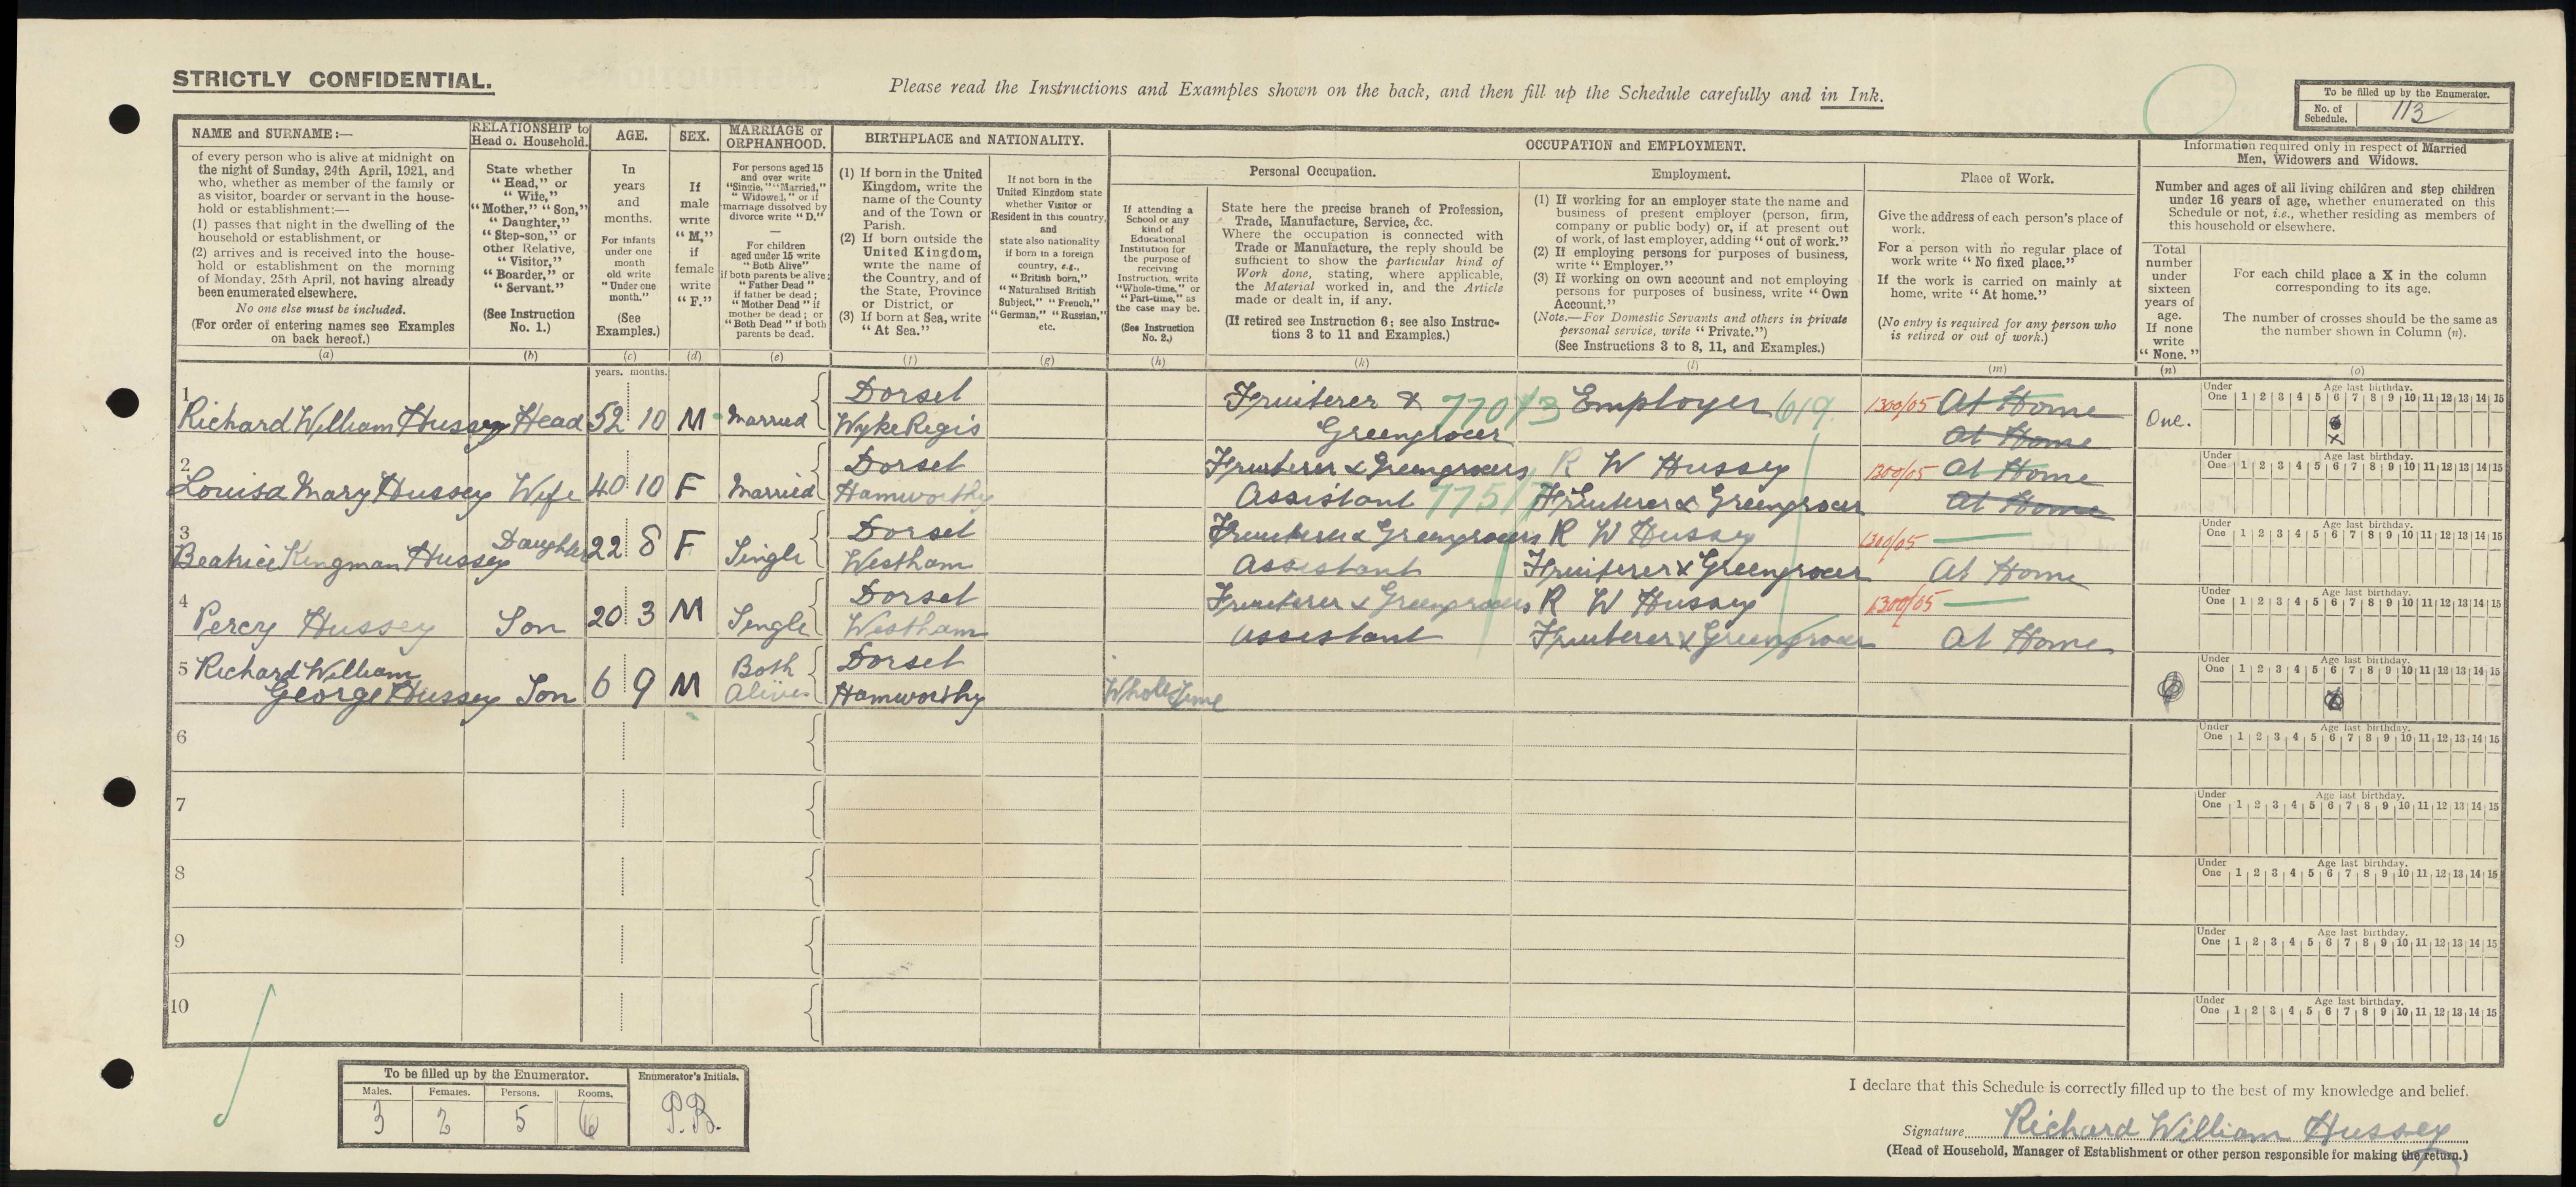 STRICTLY CONFIDENTIAL.
Please read the Instructions and Examples shown on the back, and then fill up the Schedule carefully and in Ink.
To be filled up by the Enumerator.
No. of Schedule. 113
NAME and SURNAME:—
of every person who is alive at midnight on
the night of Sunday, 24th April, 1921, and
who, whether as member of the family or
as visitor, boarder or servant in the house-
hold or establishment:—
(1) passes that night in the dwelling of the
household or establishment, or
(2) arrives and is received into the house-
hold or establishment on the morning
of Monday, 25th April, not having already
been enumerated elsewhere.
No one else must be included.
(For order of entering names see Examples
on back hereof.)
(a)
RELATIONSHIP to
Head of Household.
State whether
"Head," or
"Wife,"
"Mother," "Son,"
"Daughter,"
"Step-son," or
other Relative,
"Visitor,"
"Boarder," or
"Servant."
(See Instruction
No. 1.)
(b)
AGE.
In
years
and
months.
For infants
under one
month
old write
"Under one
month."
(See
Examples.)
(c)
years. months.
SEX.
If
male
write
"M,"
if
female
write
"F."
(d)
MARRIAGE or
ORPHANHOOD.
For persons aged 15
and over write
"Single," "Married,"
"Widowed," or if
marriage dissolved by
divorce write "D."
—
For children
aged under 15 write
"Both Alive"
if both parents be alive;
"Father Dead"
if father be dead;
"Mother Dead" if
mother be dead; or
"Both Dead" if both
parents be dead.
(e)
BIRTHPLACE and NATIONALITY.
(1) If born in the United
Kingdom, write the
name of the County
and of the Town or
Parish.
(2) If born outside the
United Kingdom,
write the name of
the Country, and of
the State, Province
or District, or
(3) If born at Sea, write
"At Sea."
(f)
If not born in the
United Kingdom state
whether Visitor or
Resident in this country,
and
state also nationality
if born in a foreign
country, e.g.,
"British born,"
"Naturalised British
Subject," "French,"
"German," "Russian,"
etc.
(g)
OCCUPATION and EMPLOYMENT.
If attending a
School or any
kind of
Educational
Institution for
the purpose of
receiving
Instruction, write
"Whole-time," or
"Part-time," as
the case may be.
(See Instruction
No. 2.)
(h)
Personal Occupation.
State here the precise branch of Profession,
Trade, Manufacture, Service, &c.
Where the occupation is connected with
Trade or Manufacture, the reply should be
sufficient to show the particular kind of
Work done, stating, where applicable,
the Material worked in, and the Article
made or dealt in, if any.
(If retired see Instruction 6; see also Instruc-
tions 3 to 11 and Examples.)
(k)
Employment.
(1) If working for an employer state the name and
business of present employer (person, firm,
company or public body) or, if at present out
of work, of last employer, adding "out of work."
(2) If employing persons for purposes of business,
write "Employer."
(3) If working on own account and not employing
persons for purposes of business, write "Own
Account."
(Note.—For Domestic Servants and others in private
personal service, write "Private.")
(See Instructions 3 to 8, 11, and Examples.)
(l)
Place of Work.
Give the address of each person's place of
work.
For a person with no regular place of
work write "No fixed place."
If the work is carried on mainly at
home, write "At home."
(No entry is required for any person who
is retired or out of work.)
(m)
Information required only in respect of Married
Men, Widowers and Widows.
Number and ages of all living children and step children
under 16 years of age, whether enumerated on this
Schedule or not, i.e., whether residing as members of
this household or elsewhere.
Total
number
under
sixteen
years of
age.
If none
write
"None."
(n)
For each child place a X in the column
corresponding to its age.
The number of crosses should be the same as
the number shown in Column (n).
(o)
1 Richard William Hussey Head 52 10 M Married Dorset Wyke Regis Fruiterer & Greengrocer 770/3 Employer 619 1300/05 At Home At Home One. X
Under One 1 2 3 4 5 6 7 8 9 10 11 12 13 14 15 Age last birthday.
2 Louisa Mary Hussey Wife 40 10 F Married Dorset Hamworthy Fruiterer & Greengrocers Assistant 775/7 R W Hussey Fruiterer & Greengrocer 1300/05 At Home At Home
Under One 1 2 3 4 5 6 7 8 9 10 11 12 13 14 15 Age last birthday.
3 Beatrice Kingman Hussey Daughter 22 8 F Single Dorset Westham Fruiterer & Greengrocers Assistant R W Hussey Fruiterer & Greengrocer 1300/05 At Home
Under One 1 2 3 4 5 6 7 8 9 10 11 12 13 14 15 Age last birthday.
4 Percy Hussey Son 20 3 M Single Dorset Westham Fruiterer & Greengrocers Assistant R W Hussey Fruiterer & Greengrocer 1300/05 At Home
Under One 1 2 3 4 5 6 7 8 9 10 11 12 13 14 15 Age last birthday.
5 Richard William George Hussey Son 6 9 M Both Alive Dorset Hamworthy Whole Time
Under One 1 2 3 4 5 6 7 8 9 10 11 12 13 14 15 Age last birthday.
6
Under One 1 2 3 4 5 6 7 8 9 10 11 12 13 14 15 Age last birthday.
7
Under One 1 2 3 4 5 6 7 8 9 10 11 12 13 14 15 Age last birthday.
8
Under One 1 2 3 4 5 6 7 8 9 10 11 12 13 14 15 Age last birthday.
9
Under One 1 2 3 4 5 6 7 8 9 10 11 12 13 14 15 Age last birthday.
10
Under One 1 2 3 4 5 6 7 8 9 10 11 12 13 14 15 Age last birthday.
To be filled up by the Enumerator.
Males. Females. Persons. Rooms.
3 2 5 6
Enumerator's Initials.
P.B.
I declare that this Schedule is correctly filled up to the best of my knowledge and belief.
Signature Richard William Hussey
(Head of Household, Manager of Establishment or other person responsible for making the return.)